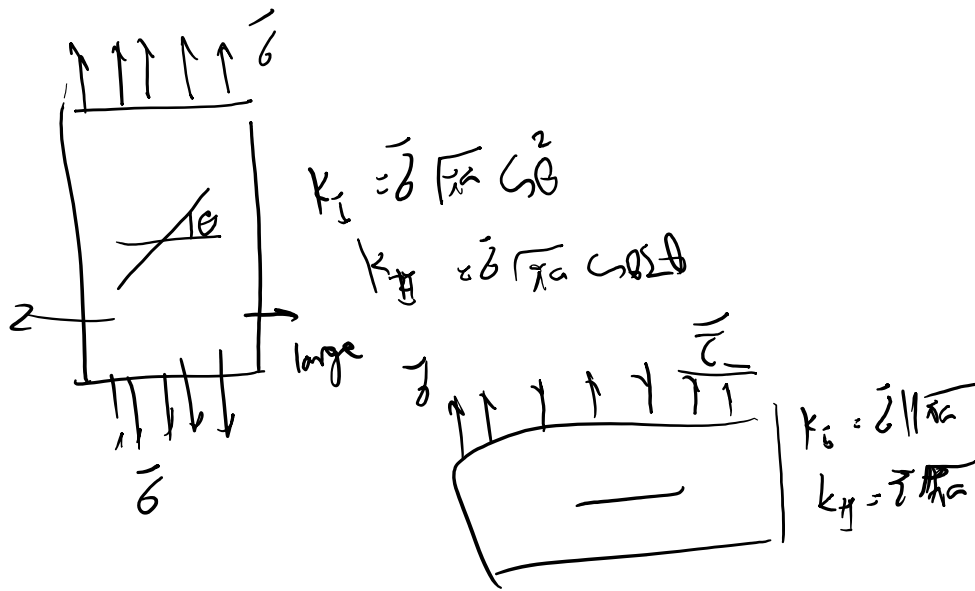 σ̄
K_I = σ̄ √πa cos²θ
θ
K_II = σ̄ √πa cosθ sinθ
2
large
σ̄
τ̄
K_I = σ̄ √πa
K_II = τ̄ √πa